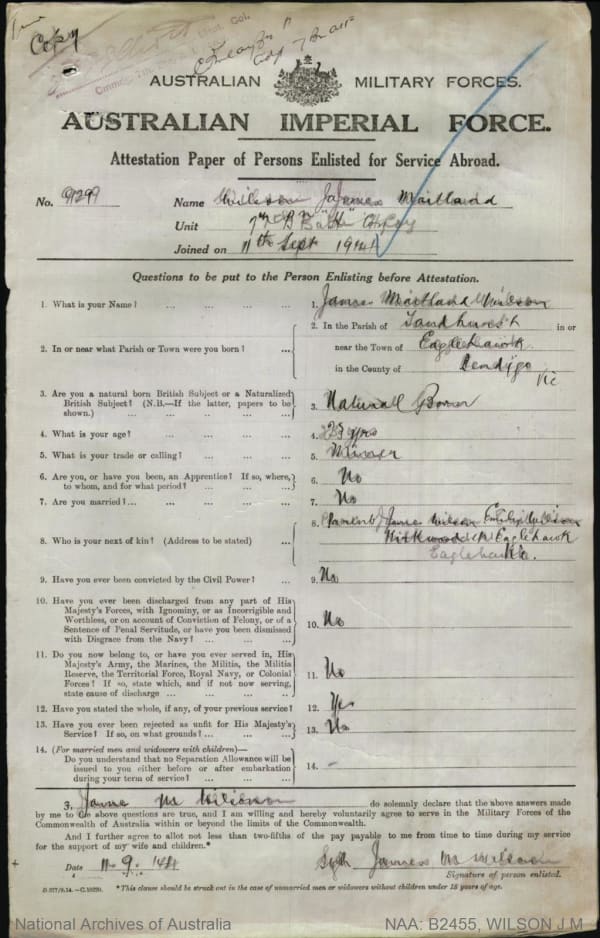 Copy
AUSTRALIAN MILITARY FORCES.
AUSTRALIAN IMPERIAL FORCE.
Attestation Paper of Persons Enlisted for Service Abroad.
No. Name Wilson James Maitland
Unit 7th Bn Coy
Joined on 11th Sept 1914
Questions to be put to the Person Enlisting before Attestation.
1. What is your Name? ... ... ... ... 1. James Maitland Wilson
2. In or near what Parish or Town were you born? ... 2. In the Parish of Sandhurst in or
near the Town of Eaglehawk
in the County of Bendigo Vic
3. Are you a natural born British Subject or a Naturalized
British Subject? (N.B.—If the latter, papers to be
shown.) ... ... ... ... 3. Natural Born
4. What is your age? ... ... ... ... 4. yrs
5. What is your trade or calling? ... ... ... 5. Miner
6. Are you, or have you been, an Apprentice? If so, where,
to whom, and for what period? ... ... ... 6. No
7. Are you married?... ... ... ... ... 7. No
8. Who is your next of kin? (Address to be stated) ... 8. (Parents) James Wilson Wilson
Kirkwood Eaglehawk
Eaglehawk
9. Have you ever been convicted by the Civil Power? ... 9. No
10. Have you ever been discharged from any part of His
Majesty's Forces, with Ignominy, or as Incorrigible and
Worthless, or on account of Conviction of Felony, or of a
Sentence of Penal Servitude, or have you been dismissed
with Disgrace from the Navy? ... ... ... 10. No
11. Do you now belong to, or have you ever served in, His
Majesty's Army, the Marines, the Militia, the Militia
Reserve, the Territorial Force, Royal Navy, or Colonial
Forces? If so, state which, and if not now serving,
state cause of discharge ... ... ... ... 11. No
12. Have you stated the whole, if any, of your previous service? 12. Yes
13. Have you ever been rejected as unfit for His Majesty's
Service? If so, on what grounds? ... ... ... 13. No
14. (For married men and widowers with children)—
Do you understand that no Separation Allowance will be
issued to you either before or after embarkation
during your term of service? ... ... ... 14. -
James M Wilson do solemnly declare that the above answers made
by me to the above questions are true, and I am willing and hereby voluntarily agree to serve in the Military Forces of the
Commonwealth of Australia within or beyond the limits of the Commonwealth.
And I further agree to allot not less than two-fifths of the pay payable to me from time to time during my service
for the support of my wife and children.*
Date 11. 9. 14 Sgd James M Wilson
Signature of person enlisted.
*This clause should be struck out in the case of unmarried men or widowers without children under 18 years of age.
National Archives of Australia NAA: B2455, WILSON J M